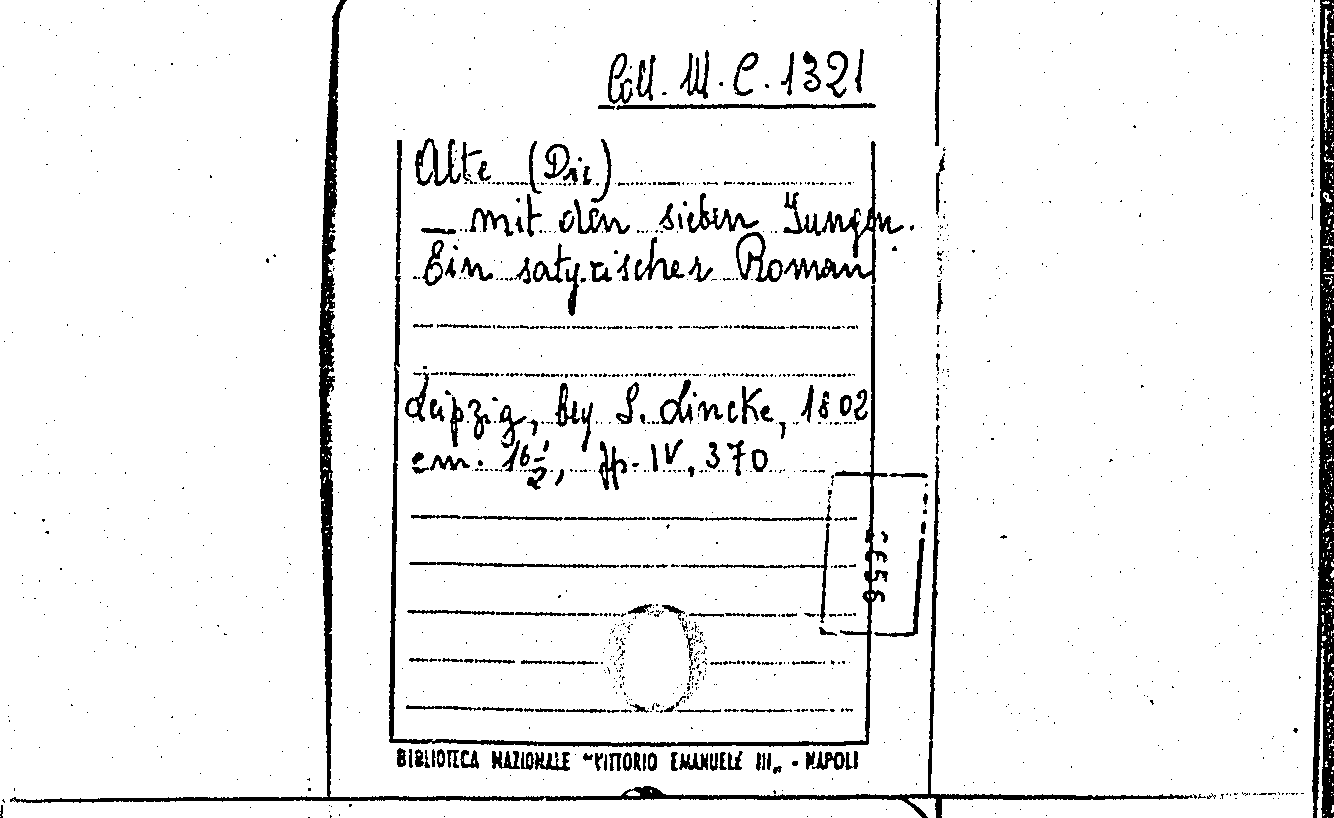 Coll. III. C. 1321
Alte (Die)
— mit den sieben Jungen.
Ein satyrischer Roman
Leipzig, bey S. Lincke, 1802
cm. 16½, pp. IV, 370
BIBLIOTECA NAZIONALE "VITTORIO EMANUELE III„ - NAPOLI